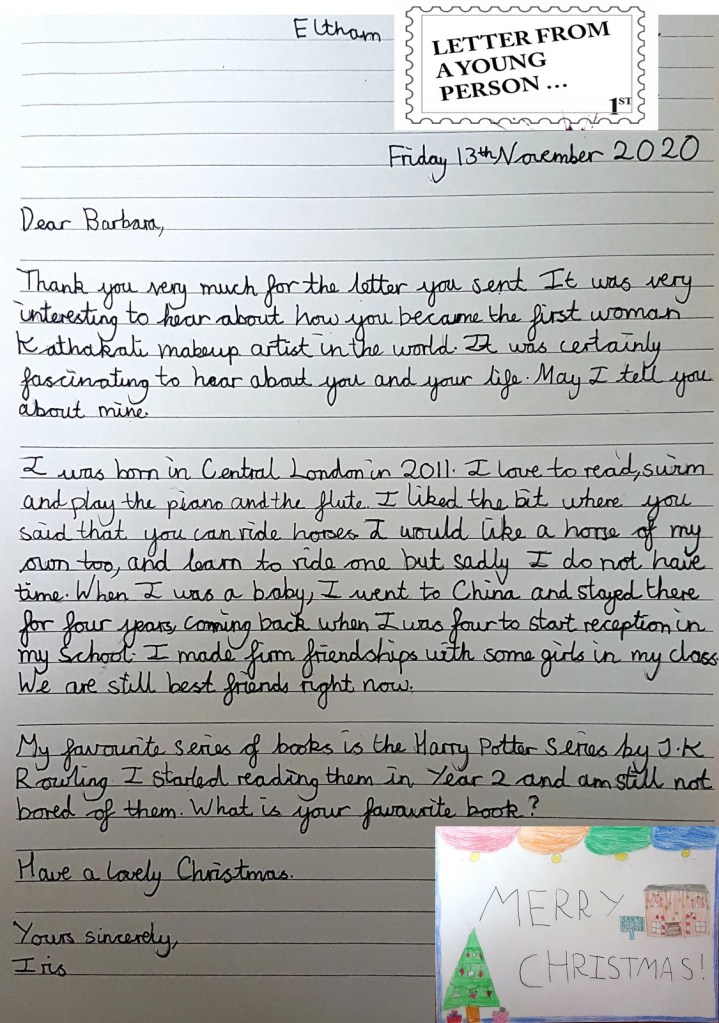 Eltham
LETTER FROM
A YOUNG
PERSON ...
1ST
Friday 13th November 2020
Dear Barbara,
Thank you very much for the letter you sent It was very
interesting to hear about how you became the first woman
Kathakali makeup artist in the world. It was certainly
fascinating to hear about you and your life. May I tell you
about mine.
I was born in Central London in 2011. I love to read, swim
and play the piano and the flute. I liked the bit where you
said that you can ride horses. I would like a horse of my
own too, and learn to ride one but sadly I do not have
time. When I was a baby, I went to China and stayed there
for four years, coming back when I was four to start reception in
my School. I made firm friendships with some girls in my class
We are still best friends right now.
My favourite series of books is the Harry Potter Series by J.K
Rowling. I started reading them in Year 2 and am still not
bored of them. What is your favourite book?
Have a lovely Christmas.
Yours sincerely,
Iris
MERRY
CHRISTMAS!